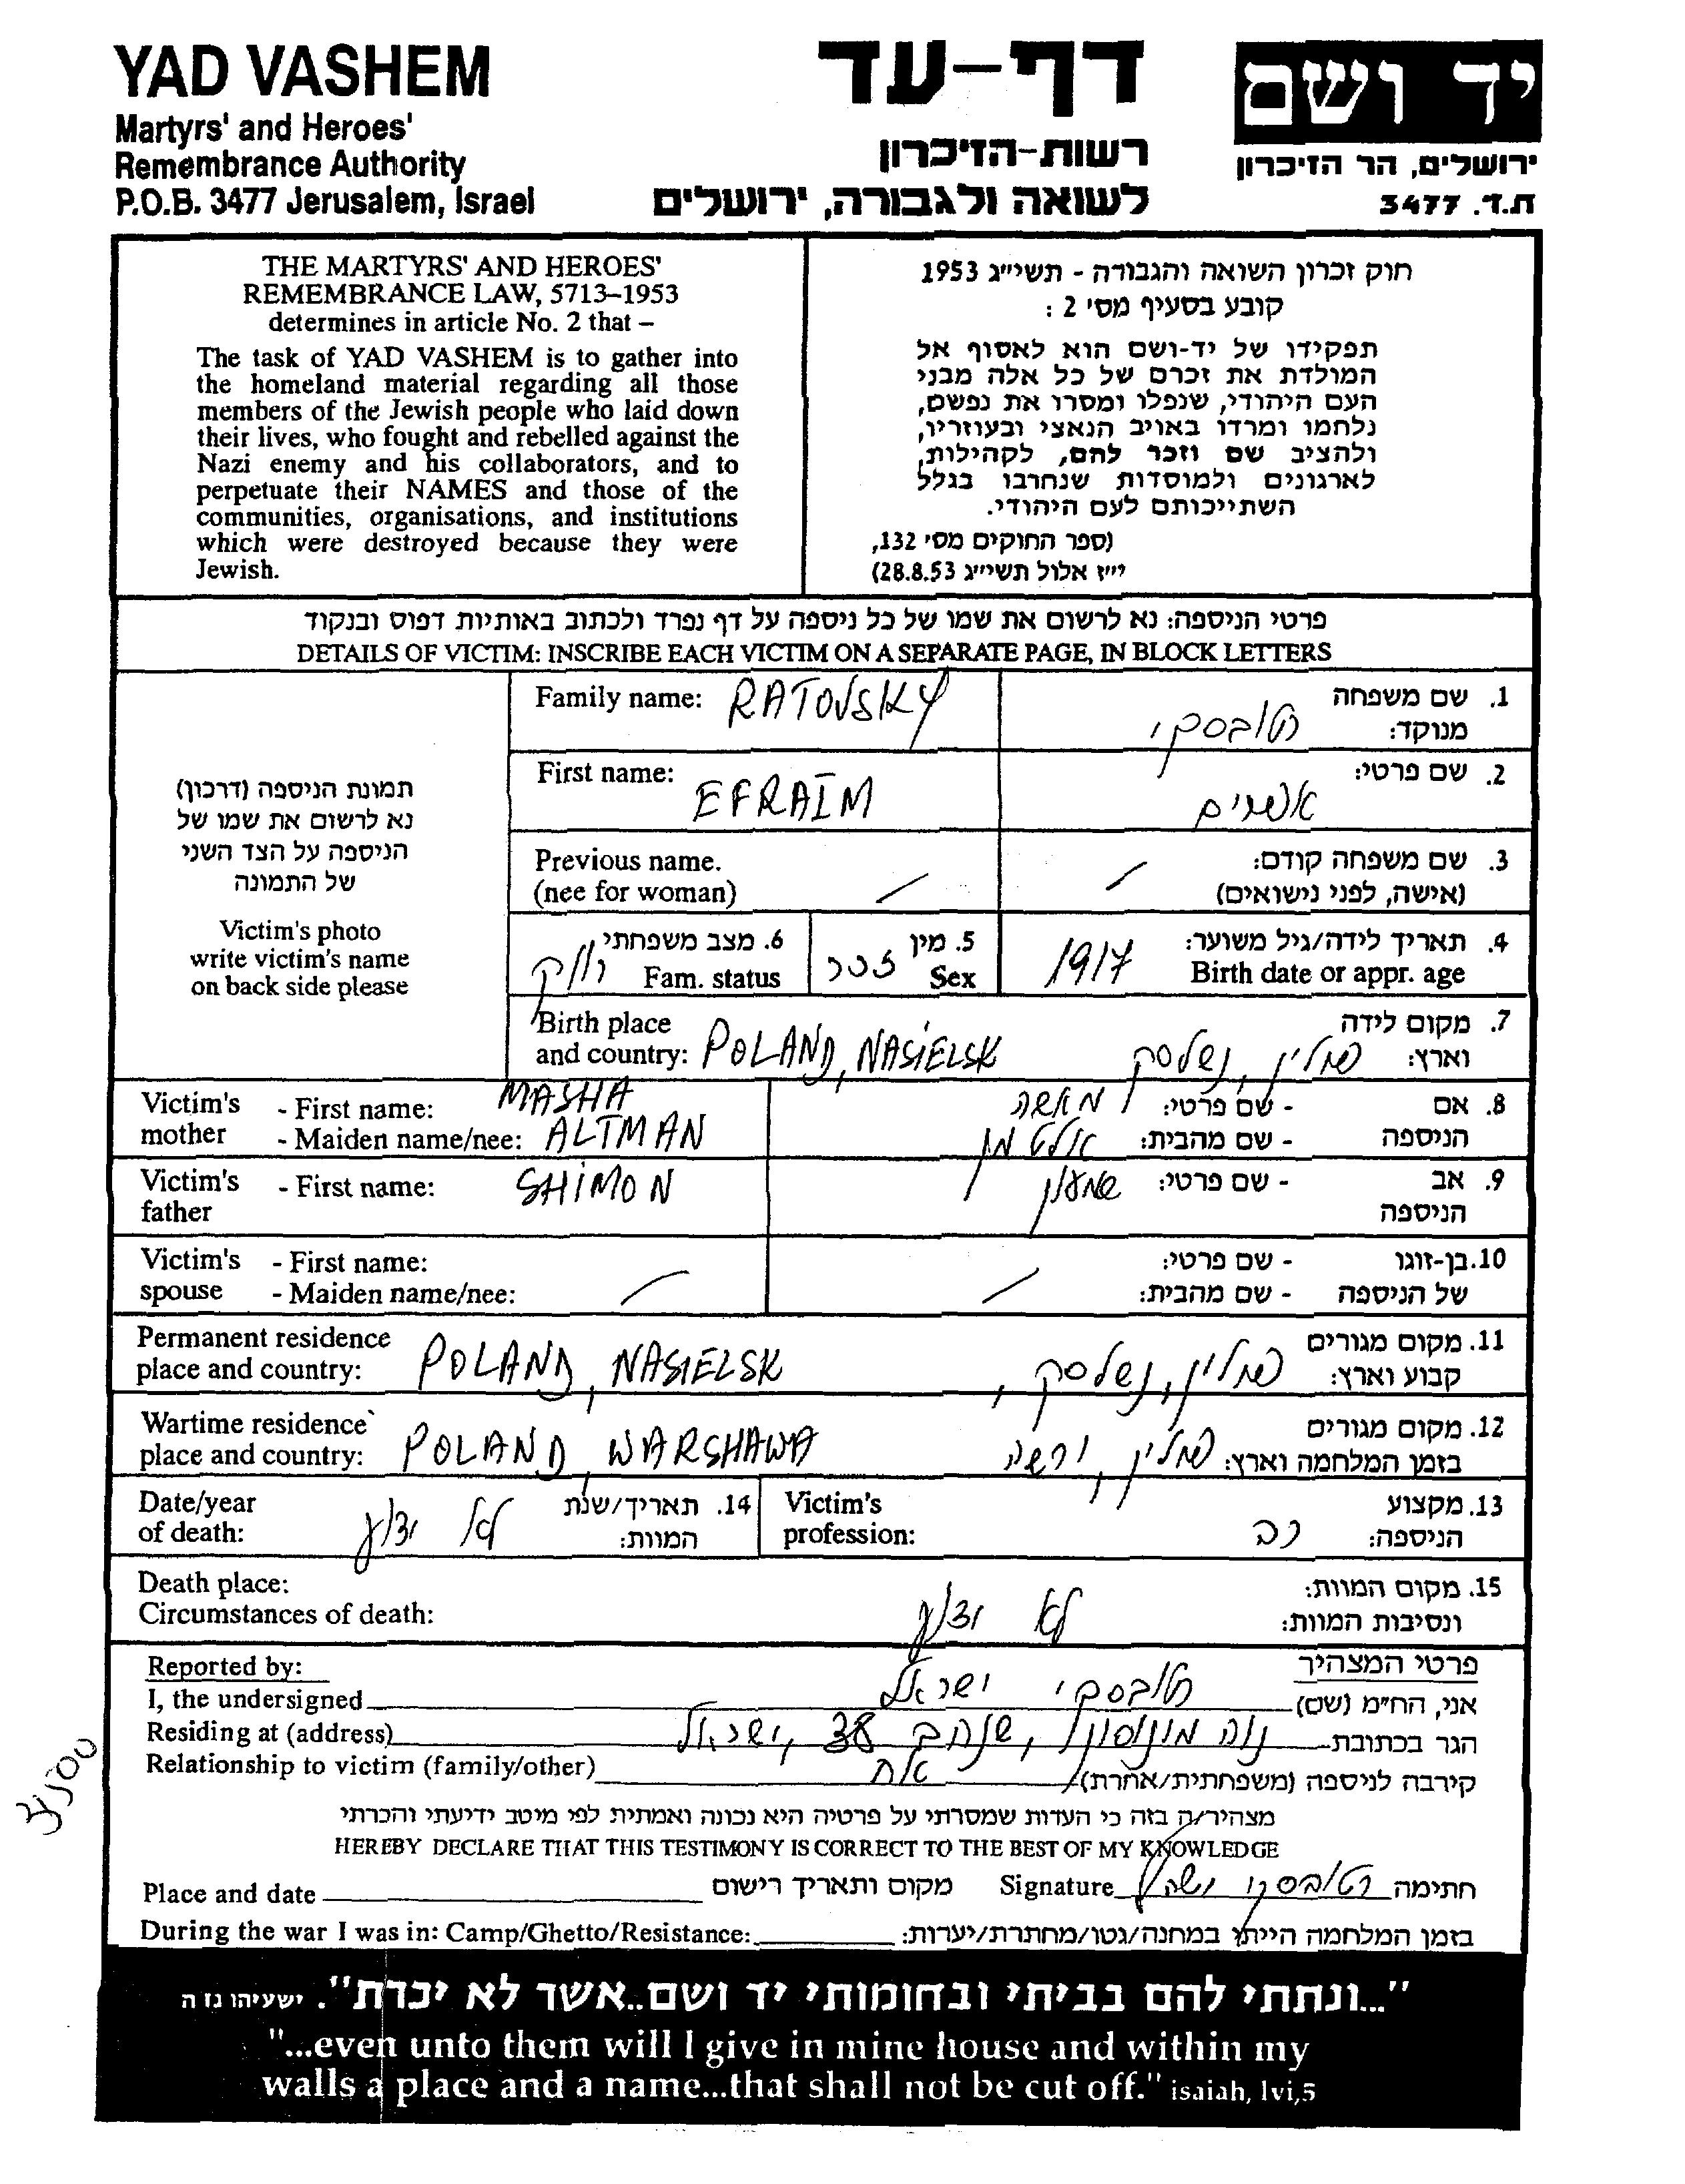 YAD VASHEM
Martyrs' and Heroes'
Remembrance Authority
P.O.B. 3477 Jerusalem, Israel
דף-עד
רשות-הזיכרון
לשואה ולגבורה, ירושלים
יד ושם
ירושלים, הר הזיכרון
ת.ד. 3477
THE MARTYRS' AND HEROES'
REMEMBRANCE LAW, 5713–1953
determines in article No. 2 that –
The task of YAD VASHEM is to gather into
the homeland material regarding all those
members of the Jewish people who laid down
their lives, who fought and rebelled against the
Nazi enemy and his collaborators, and to
perpetuate their NAMES and those of the
communities, organisations, and institutions
which were destroyed because they were
Jewish.
חוק זכרון השואה והגבורה - תשי״ג 1953
קובע בסעיף מס' 2 :
תפקידו של יד-ושם הוא לאסוף אל
המולדת את זכרם של כל אלה מבני
העם היהודי, שנפלו ומסרו את נפשם,
נלחמו ומרדו באויב הנאצי ובעוזריו,
ולהציב שם וזכר להם, לקהילות,
לארגונים ולמוסדות שנחרבו בגלל
השתייכותם לעם היהודי.
(ספר החוקים מס' 132,
י״ז אלול תשי״ג 28.8.53)
פרטי הניספה: נא לרשום את שמו של כל ניספה על דף נפרד ולכתוב באותיות דפוס ובנקוד
DETAILS OF VICTIM: INSCRIBE EACH VICTIM ON A SEPARATE PAGE, IN BLOCK LETTERS
תמונת הניספה (דרכון)
נא לרשום את שמו של
הניספה על הצד השני
של התמונה
Victim's photo
write victim's name
on back side please
Family name: RATOVSKY
1. שם משפחה
מנוקד: רטובסקי
First name: EFRAIM
2. שם פרטי: אפרים
Previous name. /
(nee for woman)
3. שם משפחה קודם: /
(אישה, לפני נישואים)
4. תאריך לידה/גיל משוער:
Birth date or appr. age 1917
5. מין
Sex זכר
6. מצב משפחתי
Fam. status רווק
Birth place
and country: POLAND, NASIELSK
7. מקום לידה
וארץ: פולין, נשלסק
Victim's mother - First name: MASHA
- Maiden name/nee: ALTMAN
8. אם - שם פרטי: מאשה
הניספה - שם מהבית: אלטמן
Victim's father - First name: SHIMON
9. אב - שם פרטי: שמעון
הניספה
Victim's - First name:
spouse - Maiden name/nee: /
10. בן-זוגו - שם פרטי:
של הניספה - שם מהבית: /
Permanent residence
place and country: POLAND, NASIELSK
11. מקום מגורים
קבוע וארץ: פולין, נשלסק,
Wartime residence
place and country: POLAND, WARSHAWA
12. מקום מגורים
בזמן המלחמה וארץ: פולין, ורשה
Date/year
of death:
14. תאריך/שנת
המוות: לא ידוע
Victim's
profession:
13. מקצוע
הניספה: רב
Death place:
Circumstances of death:
15. מקום המוות:
ונסיבות המוות: לא ידוע
Reported by:
פרטי המצהיר
I, the undersigned
אני, הח״מ (שם) רטובסקי ישראל
Residing at (address)
הגר בכתובת נוה מונוסון, 38, ישראל
Relationship to victim (family/other)
קירבה לניספה (משפחתית/אחרת) אח
מצהיר/ה בזה כי העדות שמסרתי על פרטיה היא נכונה ואמתית לפי מיטב ידיעתי והכרתי
HEREBY DECLARE THAT THIS TESTIMONY IS CORRECT TO THE BEST OF MY KNOWLEDGE
Place and date
מקום ותאריך רישום
Signature
חתימה רטובסקי ישראל
During the war I was in: Camp/Ghetto/Resistance:
בזמן המלחמה הייתי במחנה/גטו/מחתרת/יערות:
"...ונתתי להם בביתי ובחומותי יד ושם..אשר לא יכרת". ישעיהו נו ה
"...even unto them will I give in mine house and within my
walls a place and a name...that shall not be cut off." isaiah, lvi,5